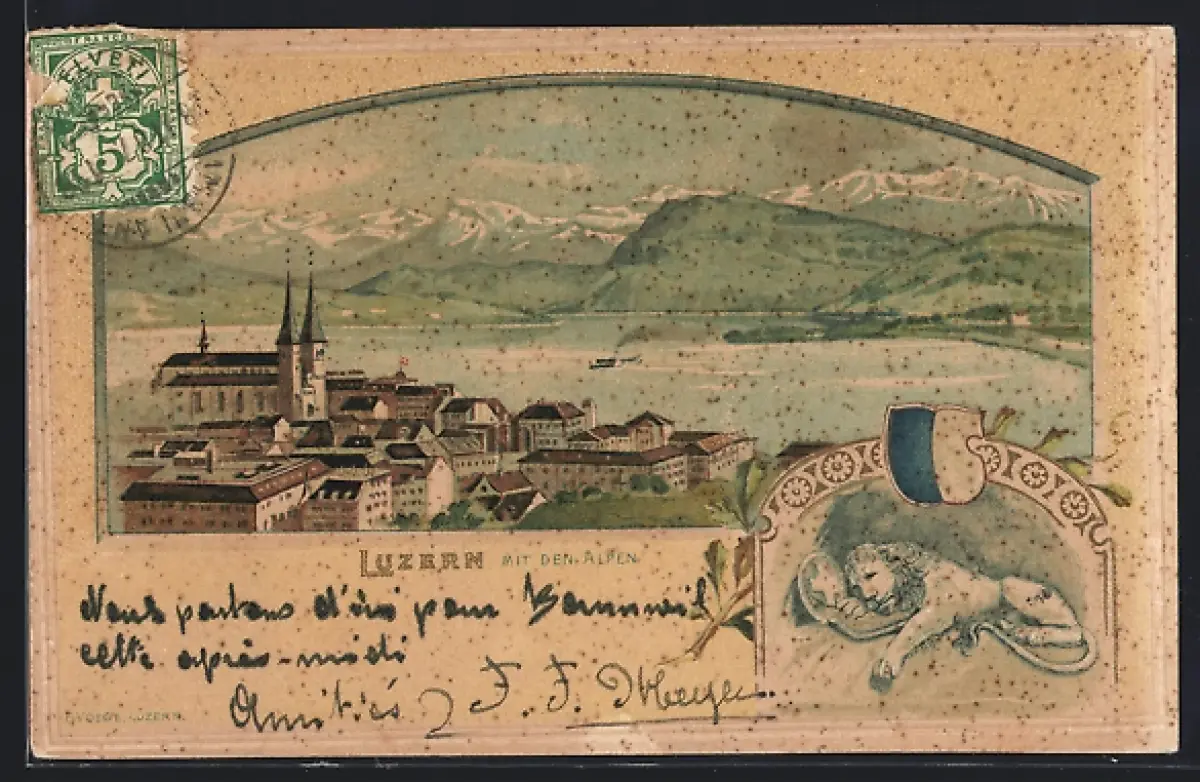 FRANCO
HELVETIA
5
LUZERN MIT DEN ALPEN.
Nous partons d'ici pour
cette après-midi
Amitiés F. F. Meyer
LUZERN.